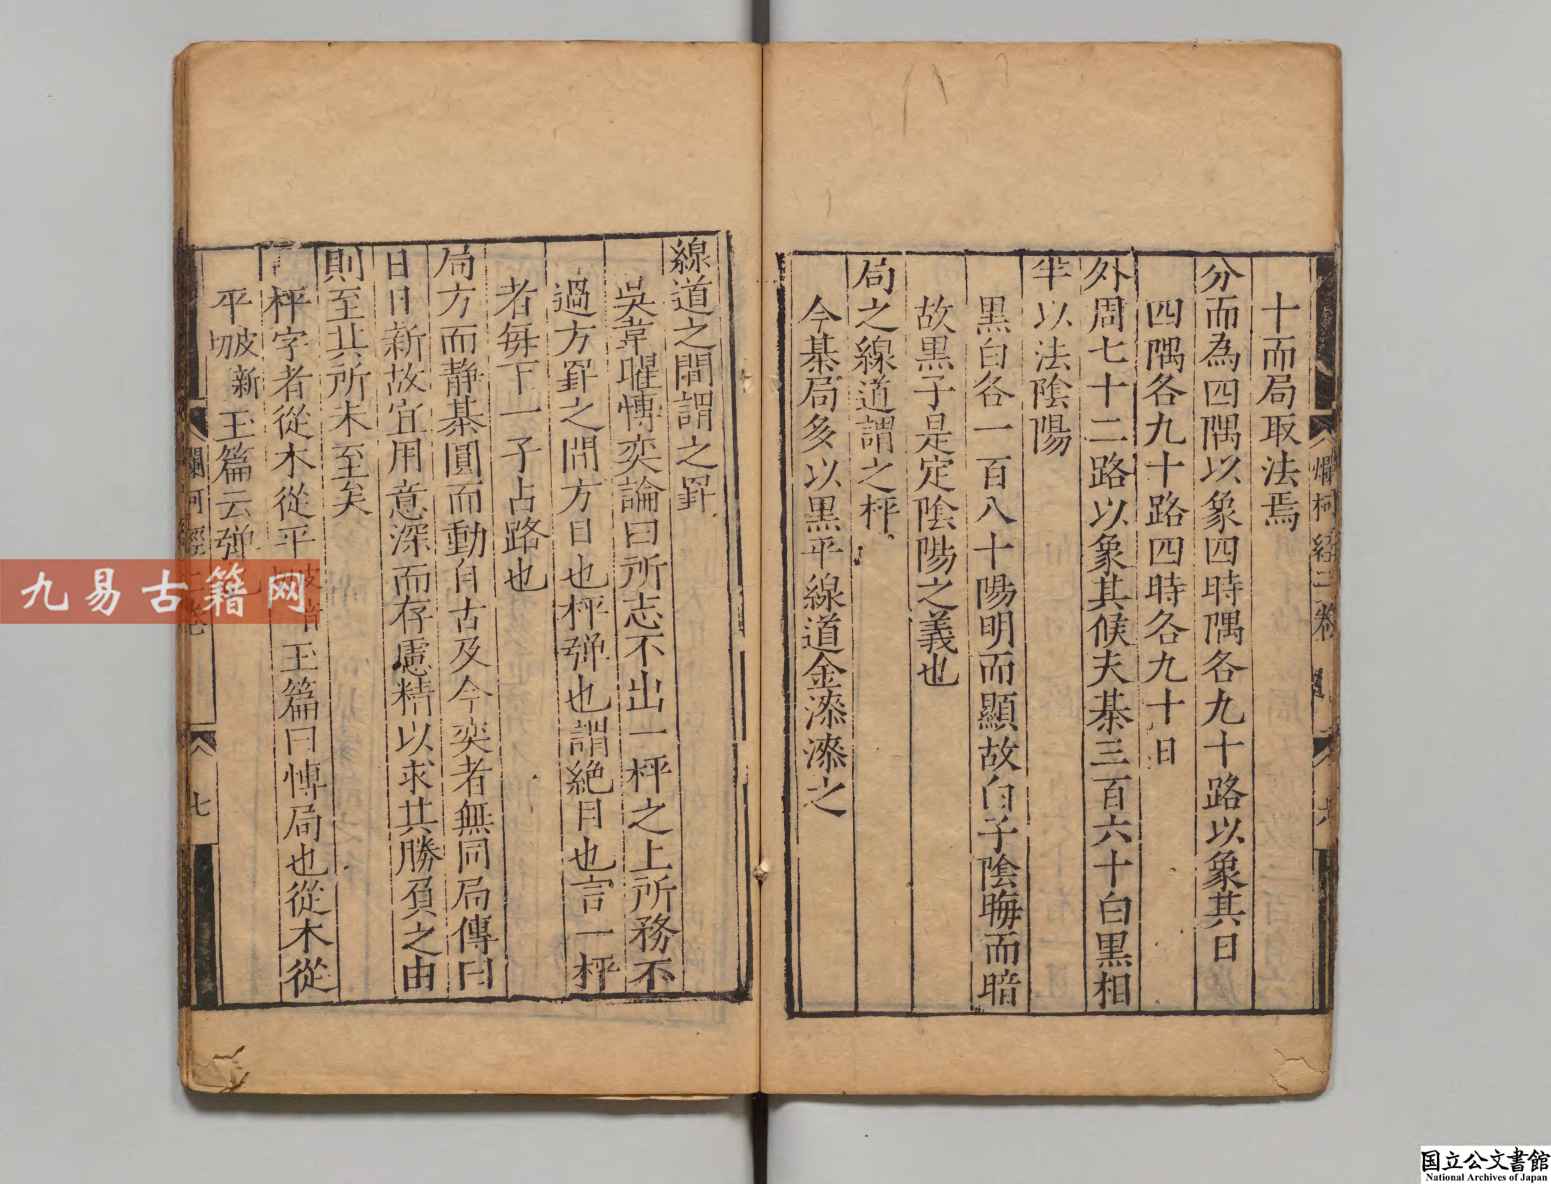 十而局取法焉
分而為四隅以象四時隅各九十路以象其日
四隅各九十路四時各九十日
外周七十二路以象其候夫棊三百六十白黑相
半以法陰陽
黑白各一百八十陽明而顯故白子陰晦而暗
故黑子是定陰陽之義也
局之線道謂之枰
今棊局多以黑平線道金漆漆之
線道之間謂之罫
吳韋曜愽奕論曰所志不出一枰之上所務不
過方罫之間方目也枰弹也謂絶目也言一枰
者每下一子占路也
局方而静棊圓而動自古及今奕者無同局傳曰
日日新故宜用意深而存慮精以求其勝負之由
則至其所未至矣
枰字者從木從平
玉篇曰愽局也從木從
平 玉篇云弹
爛柯經二卷
七
九易古籍网
国立公文書館
National Archives of Japan